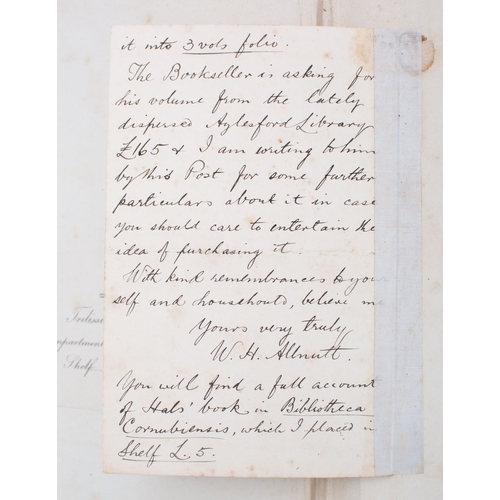 it into 3 vols folio.
The Bookseller is asking for
his volume from the lately
dispersed Aylesford Library
£165 & I am writing to him
by this Post for some further
particulars about it in case
you should care to entertain the
idea of purchasing it.
With kind remembrances to your
self and household, believe me
Yours very truly
W. H. Allnutt.
You will find a full account
of Hals' book in Bibliotheca
Cornubiensis, which I placed in
Shelf L. 5.
Shelf